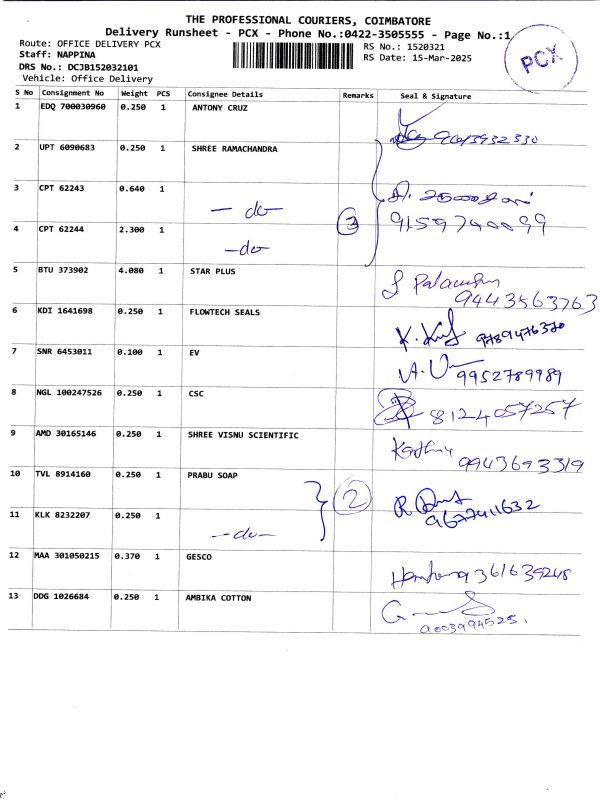 THE PROFESSIONAL COURIERS, COIMBATORE
Delivery Runsheet - PCX - Phone No.:0422-3505555 - Page No.:1
Route: OFFICE DELIVERY PCX
RS No.: 1520321
Staff: NAPPINA
RS Date: 15-Mar-2025
DRS No.: DCJB152032101
Vehicle: Office Delivery
PCX
S No Consignment No Weight PCS Consignee Details Remarks Seal & Signature
1 EDQ 700030960 0.250 1 ANTONY CRUZ
2 UPT 6090683 0.250 1 SHREE RAMACHANDRA
3 CPT 62243 0.640 1 -do- 3 9159740099
4 CPT 62244 2.300 1 -do-
5 BTU 373902 4.080 1 STAR PLUS 9443563763
6 KDI 1641698 0.250 1 FLOWTECH SEALS 9789476370
7 SNR 6453011 0.100 1 EV 9952789989
8 NGL 100247526 0.250 1 CSC 8124057257
9 AMD 30165146 0.250 1 SHREE VISNU SCIENTIFIC 9943693319
10 TVL 8914160 0.250 1 PRABU SOAP 2 9677411632
11 KLK 8232207 0.250 1 -do-
12 MAA 301050215 0.370 1 GESCO
13 DDG 1026684 0.250 1 AMBIKA COTTON 9003994525.